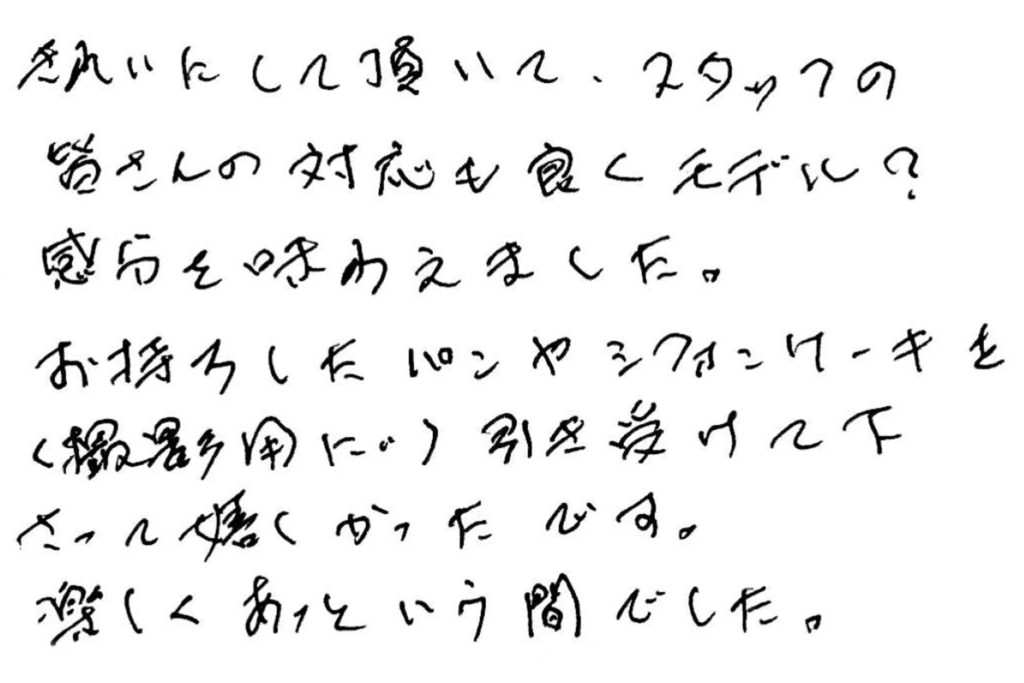 きれいにして頂いて、スタッフの
皆さんの対応も良くモデル?
感分を味わえました。
お持ちしたパンやシフォンケーキを
(撮影用に‥)引き受けて下
さって嬉しかったです。
楽しくあっという間でした。